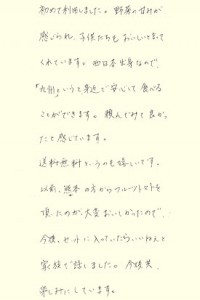 初めて利用しました。野菜の甘みが
感じられ、子供たちもおいしいと食べて
くれています。西日本出身なので、
「九州」というと身近で安心して食べる
ことができます。頼んでみて良かっ
たと感じています。
送料無料というのも嬉しいです。
以前、熊本の方からフルーツトマトを
頂いたのが、大変おいしかったので、
今後、セットに入っていたらいいねと
家族で話しました。今後共、
楽しみにしています。